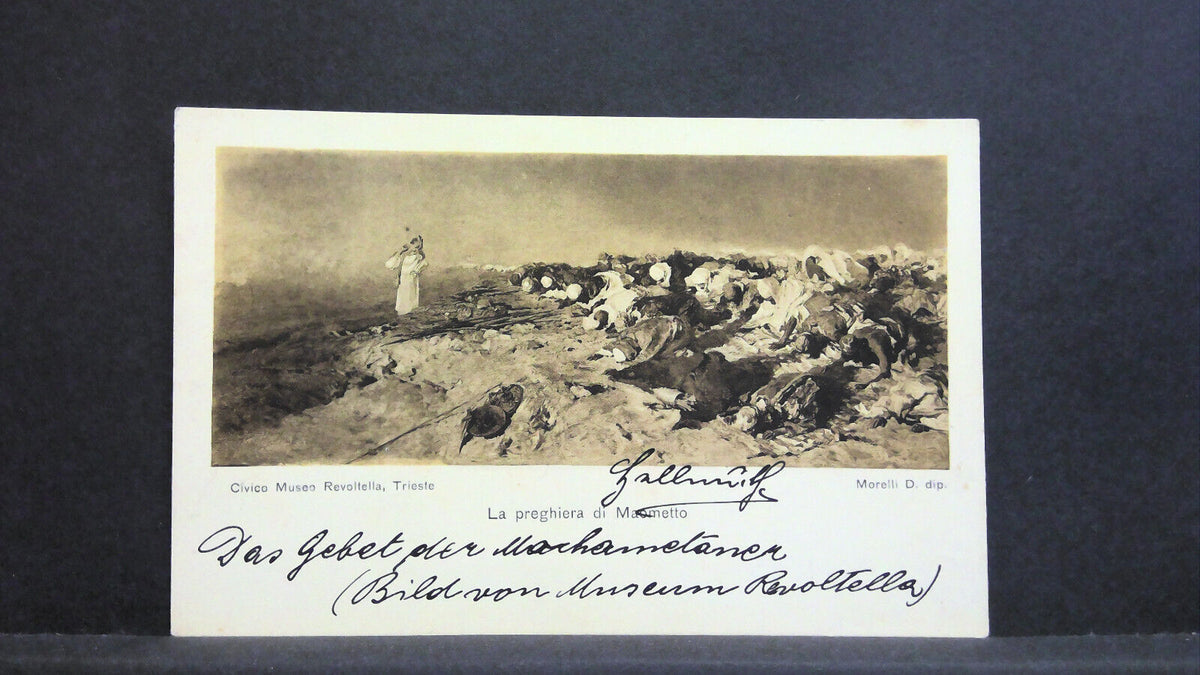 Civico Museo Revoltella, Trieste
Morelli D. dip.
La preghiera di Maometto
Das Gebet der Mochametaner
(Bild von Museum Revoltella)